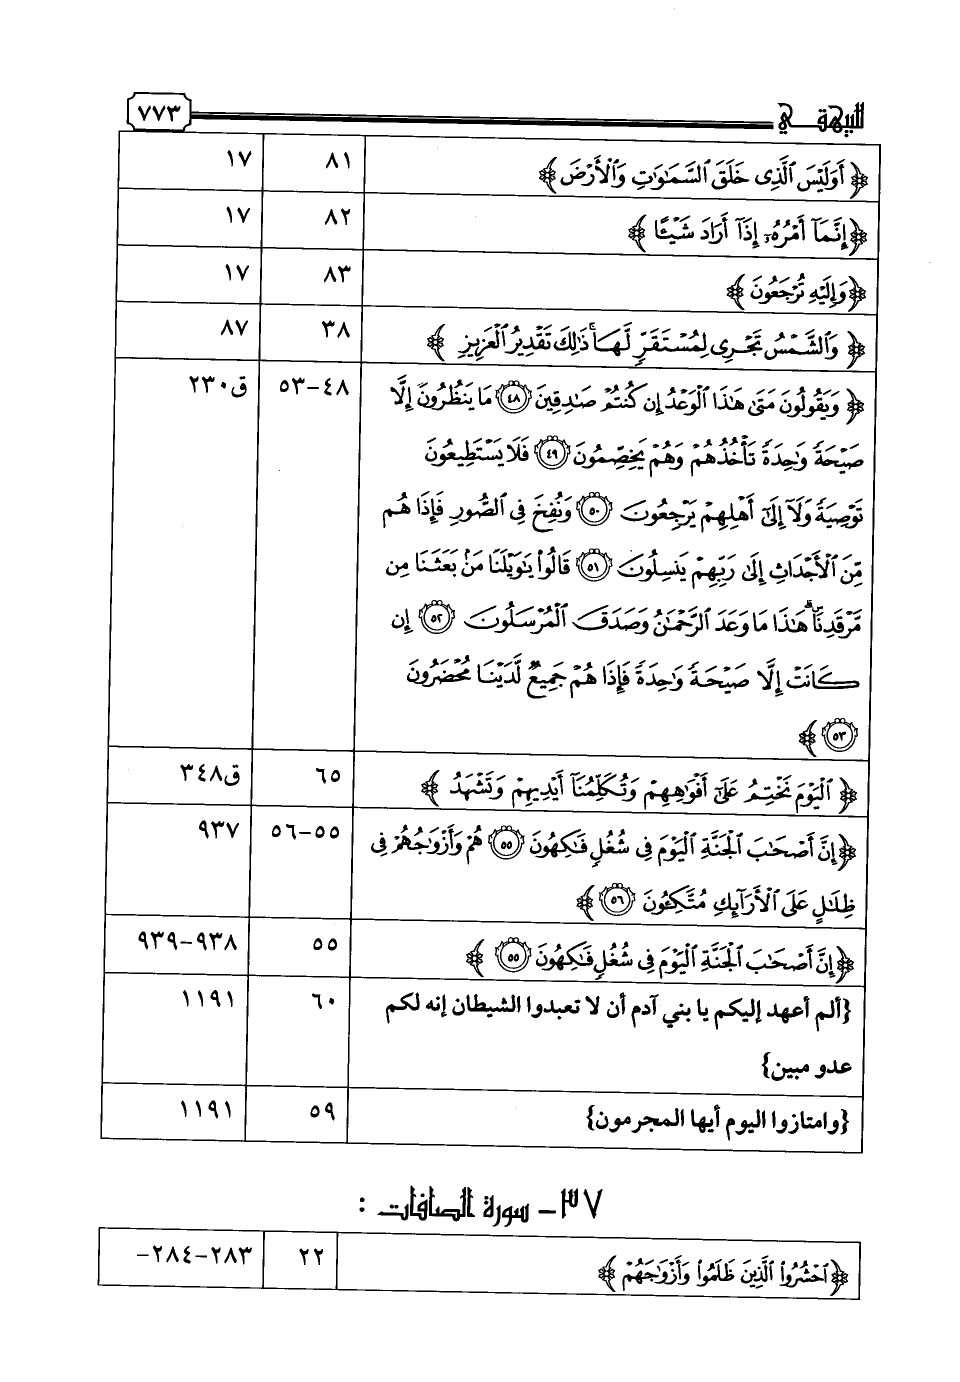 للبيهقي ٧٧٣
﴿ أَوَلَيْسَ ٱلَّذِى خَلَقَ ٱلسَّمَٰوَٰتِ وَٱلْأَرْضَ ﴾ ٨١ ١٧
﴿ إِنَّمَآ أَمْرُهُۥٓ إِذَآ أَرَادَ شَيْـًٔا ﴾ ٨٢ ١٧
﴿ وَإِلَيْهِ تُرْجَعُونَ ﴾ ٨٣ ١٧
﴿ وَٱلشَّمْسُ تَجْرِى لِمُسْتَقَرٍّ لَّهَا ۚ ذَٰلِكَ تَقْدِيرُ ٱلْعَزِيزِ ﴾ ٣٨ ٨٧
﴿ وَيَقُولُونَ مَتَىٰ هَٰذَا ٱلْوَعْدُ إِن كُنتُمْ صَٰدِقِينَ ٤٨ مَا يَنظُرُونَ إِلَّا ٤٨-٥٣ ق٢٣٠
صَيْحَةً وَٰحِدَةً تَأْخُذُهُمْ وَهُمْ يَخِصِّمُونَ ٤٩ فَلَا يَسْتَطِيعُونَ
تَوْصِيَةً وَلَآ إِلَىٰٓ أَهْلِهِمْ يَرْجِعُونَ ٥٠ وَنُفِخَ فِى ٱلصُّورِ فَإِذَا هُم
مِّنَ ٱلْأَجْدَاثِ إِلَىٰ رَبِّهِمْ يَنسِلُونَ ٥١ قَالُوا۟ يَٰوَيْلَنَا مَنۢ بَعَثَنَا مِن
مَّرْقَدِنَا ۜ ۗ هَٰذَا مَا وَعَدَ ٱلرَّحْمَٰنُ وَصَدَقَ ٱلْمُرْسَلُونَ ٥٢ إِن
كَانَتْ إِلَّا صَيْحَةً وَٰحِدَةً فَإِذَا هُمْ جَمِيعٌ لَّدَيْنَا مُحْضَرُونَ
٥٣ ﴾
﴿ ٱلْيَوْمَ نَخْتِمُ عَلَىٰٓ أَفْوَٰهِهِمْ وَتُكَلِّمُنَآ أَيْدِيهِمْ وَتَشْهَدُ ﴾ ٦٥ ق٣٤٨
﴿ إِنَّ أَصْحَٰبَ ٱلْجَنَّةِ ٱلْيَوْمَ فِى شُغُلٍ فَٰكِهُونَ ٥٥ هُمْ وَأَزْوَٰجُهُمْ فِى ٥٥-٥٦ ٩٣٧
ظِلَٰلٍ عَلَى ٱلْأَرَآئِكِ مُتَّكِـُٔونَ ٥٦ ﴾
﴿ إِنَّ أَصْحَٰبَ ٱلْجَنَّةِ ٱلْيَوْمَ فِى شُغُلٍ فَٰكِهُونَ ٥٥ ﴾ ٥٥ ٩٣٨-٩٣٩
{ألم أعهد إليكم يا بني آدم أن لا تعبدوا الشيطان إنه لكم ٦٠ ١١٩١
عدو مبين}
{وامتازوا اليوم أيها المجرمون} ٥٩ ١١٩١
٣٧- سورة الصافات :
﴿ ٱحْشُرُوا۟ ٱلَّذِينَ ظَلَمُوا۟ وَأَزْوَٰجَهُمْ ﴾ ٢٢ ٢٨٣-٢٨٤-